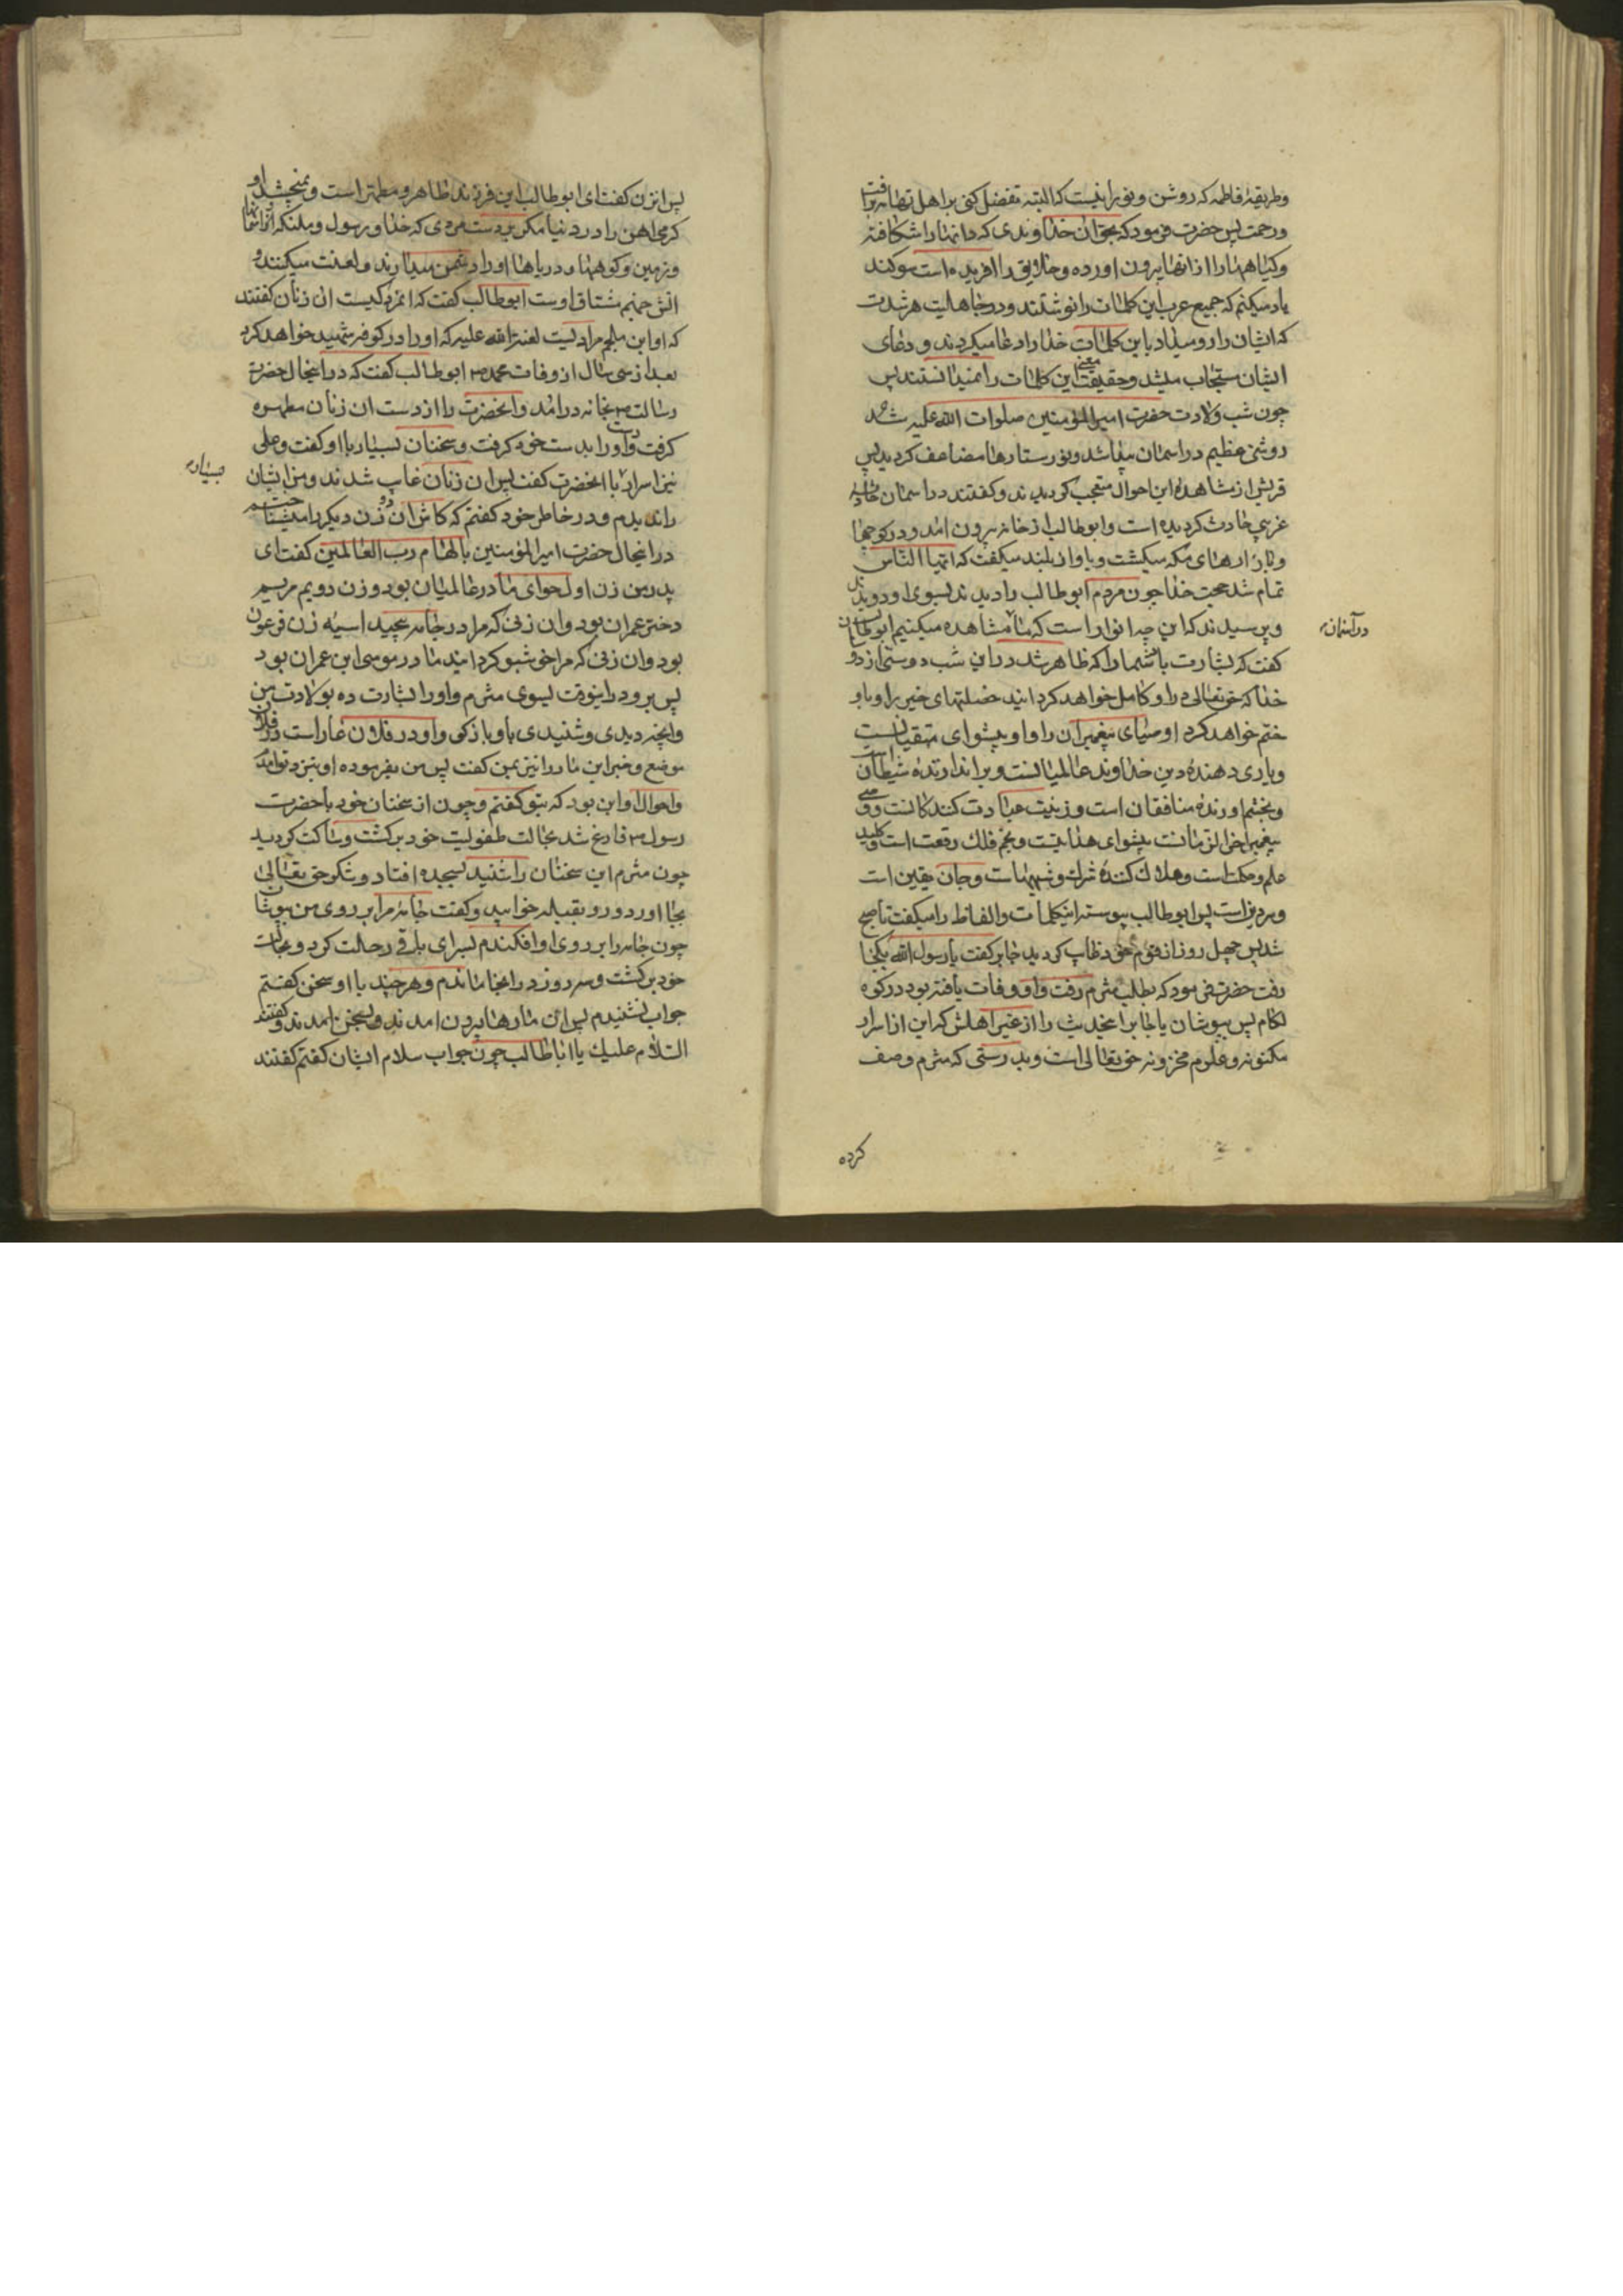 وطریقهٔ فاطمه که روشن و نورانیست که البته تفضل کنی بر اهل تهامه برافت
ورحمت پس حضرت فرمود که بحق ان خداوندی که دانها را شکافته
وکیاهها را از انها بیرون اورده و خلایق را افریده است سوکند
یاد میکنم که جمیع عرب این کلمات را نوشتند ودر جاهلیت هر شدت
که ایشان را رو میداد باین کلمات خدا را دعا میکردند و دعای
ایشان مستجاب میشد وحقیقت معنی این کلمات را نمیدانستند پس
چون شب ولادت حضرت امیرالمؤمنین صلوات الله علیه شد
روشنی عظیم در اسمان پیدا شد ونور ستارها مضاعف کردید پس
قریش از مشاهدهٔ این احوال متعجب کردیدند وکفتند در اسمان حادثهٔ
غریبی حادث کردیده است وابوطالب از خانه بیرون امد و در کوچها
وبازارهای مکه میکشت وباواز بلند میکفت که ایها الناس
تمام شد حجت خدا چون مردم ابوطالب را دیدند بسوی او دویدند
وپرسیدند که این چه انوار است که ما مشاهده میکنیم ابوطالب
در آسمان
کفت که بشارت باد شما را که ظاهر شد در این شب دوستی از دو
خدا که حق تعالی در او کامل خواهد کردانید خصلتهای خیر را وباو
ختم خواهد کرد اوصیای پیغمبران را واو پیشوای متقیانست
ویاری دهندهٔ دین خداوند عالمیانست وبراندازندهٔ شیطان است
وبخشم اورندهٔ منافقان است وزینت عبادت کنندکانست ووصی
پیغمبر اخرالزمانست پیشوای هدایتست ونجم فلک رفعت است وکلید
علم وحکمت است وهلاک کنندهٔ شرک وشبهات وجان یقین است
پس ابوطالب پیوسته اینکلمات والفاظ را میکفت تا صبح
شد پس چهل روز از قوم خود غایب کردید جابر کفت یا رسول الله بکجا
رفت حضرت فرمود که بطلب مثرم رفت واو وفات یافته بود در کوه
لکام پس بپوشان یا جابر این حدیث را از غیر اهلش که این از اسرار
مکنونه وعلوم مخزونه حق تعالی است وبدرستی که مثرم وصف
کرده
پس ان زن کفت ای ابوطالب این فرزند طاهر ومطهر است ونمیچشد او
کرمی اهن را در دنیا مکر بر دست مردی که خدا ورسول وملئکه واسمانها
وزمین وکوهها ودریاها او را دشمن میدارند ولعنت میکنند و
اتش جهنم مشتاق اوست ابوطالب کفت که انمرد کیست ان زنان کفتند
که او ابن ملجم مرادیست لعنه الله علیه که او را در کوفه شهید خواهد کرد
بعد از سی سال از وفات محمد ص ابوطالب کفت که در اینحال حضرت
رسالت ص بخانه درامد وانحضرت را از دست ان زنان مطهره
کرفت ودست او را بدست خود کرفت وسخنان بسیار با او کفت وعلی
نیز اسرار با انحضرت کفت پس ان زنان غایب شدند ومن ایشان
بسیار
را ندیدم ودر خاطر خود کفتم که کاش ان دو زن دیکر را میشناختم
در اینحال حضرت امیرالمؤمنین بالهام رب العالمین کفت ای
پدر من زن اول حوای مادر عالمیان بود وزن دویم مریم
دختر عمران بود وان زنی که مرا در جامه پیچید اسیه زن فرعون
بود وان زنی که مرا خوشبو کردانید مادر موسی ابن عمران بود
پس برو در اینوقت بسوی مثرم واو را بشارت ده بولادت من
وانچه دیدی وشنیدی باو باز کو واو در فلان غار است ودر فلان
موضع وخبر این مار را نیز بمن کفت پس من بفرموده او بنزد تو امدم
واحوال او این بود که بتو کفتم وچون از سخنان خود با حضرت
رسول ص فارغ شد بحالت طفولیت خود برکشت وساکت کردید
چون مثرم این سخنان را شنید بسجده افتاد وشکر حق تعالی
بجا اورد ورو بقبله خوابید وکفت جامهٔ مرا بر روی من بپوشان
چون جامه را بر روی او افکندم بسرای باقی رحلت کرد وبحالت
خود برکشت وسه روز در انجا ماندم وهر چند با او سخن کفتم
جواب نشنیدم پس ان مارها بیرون امدند وبسخن امدند وکفتند
السلام علیک یا اباطالب چون جواب سلام ایشان کفتم کفتند